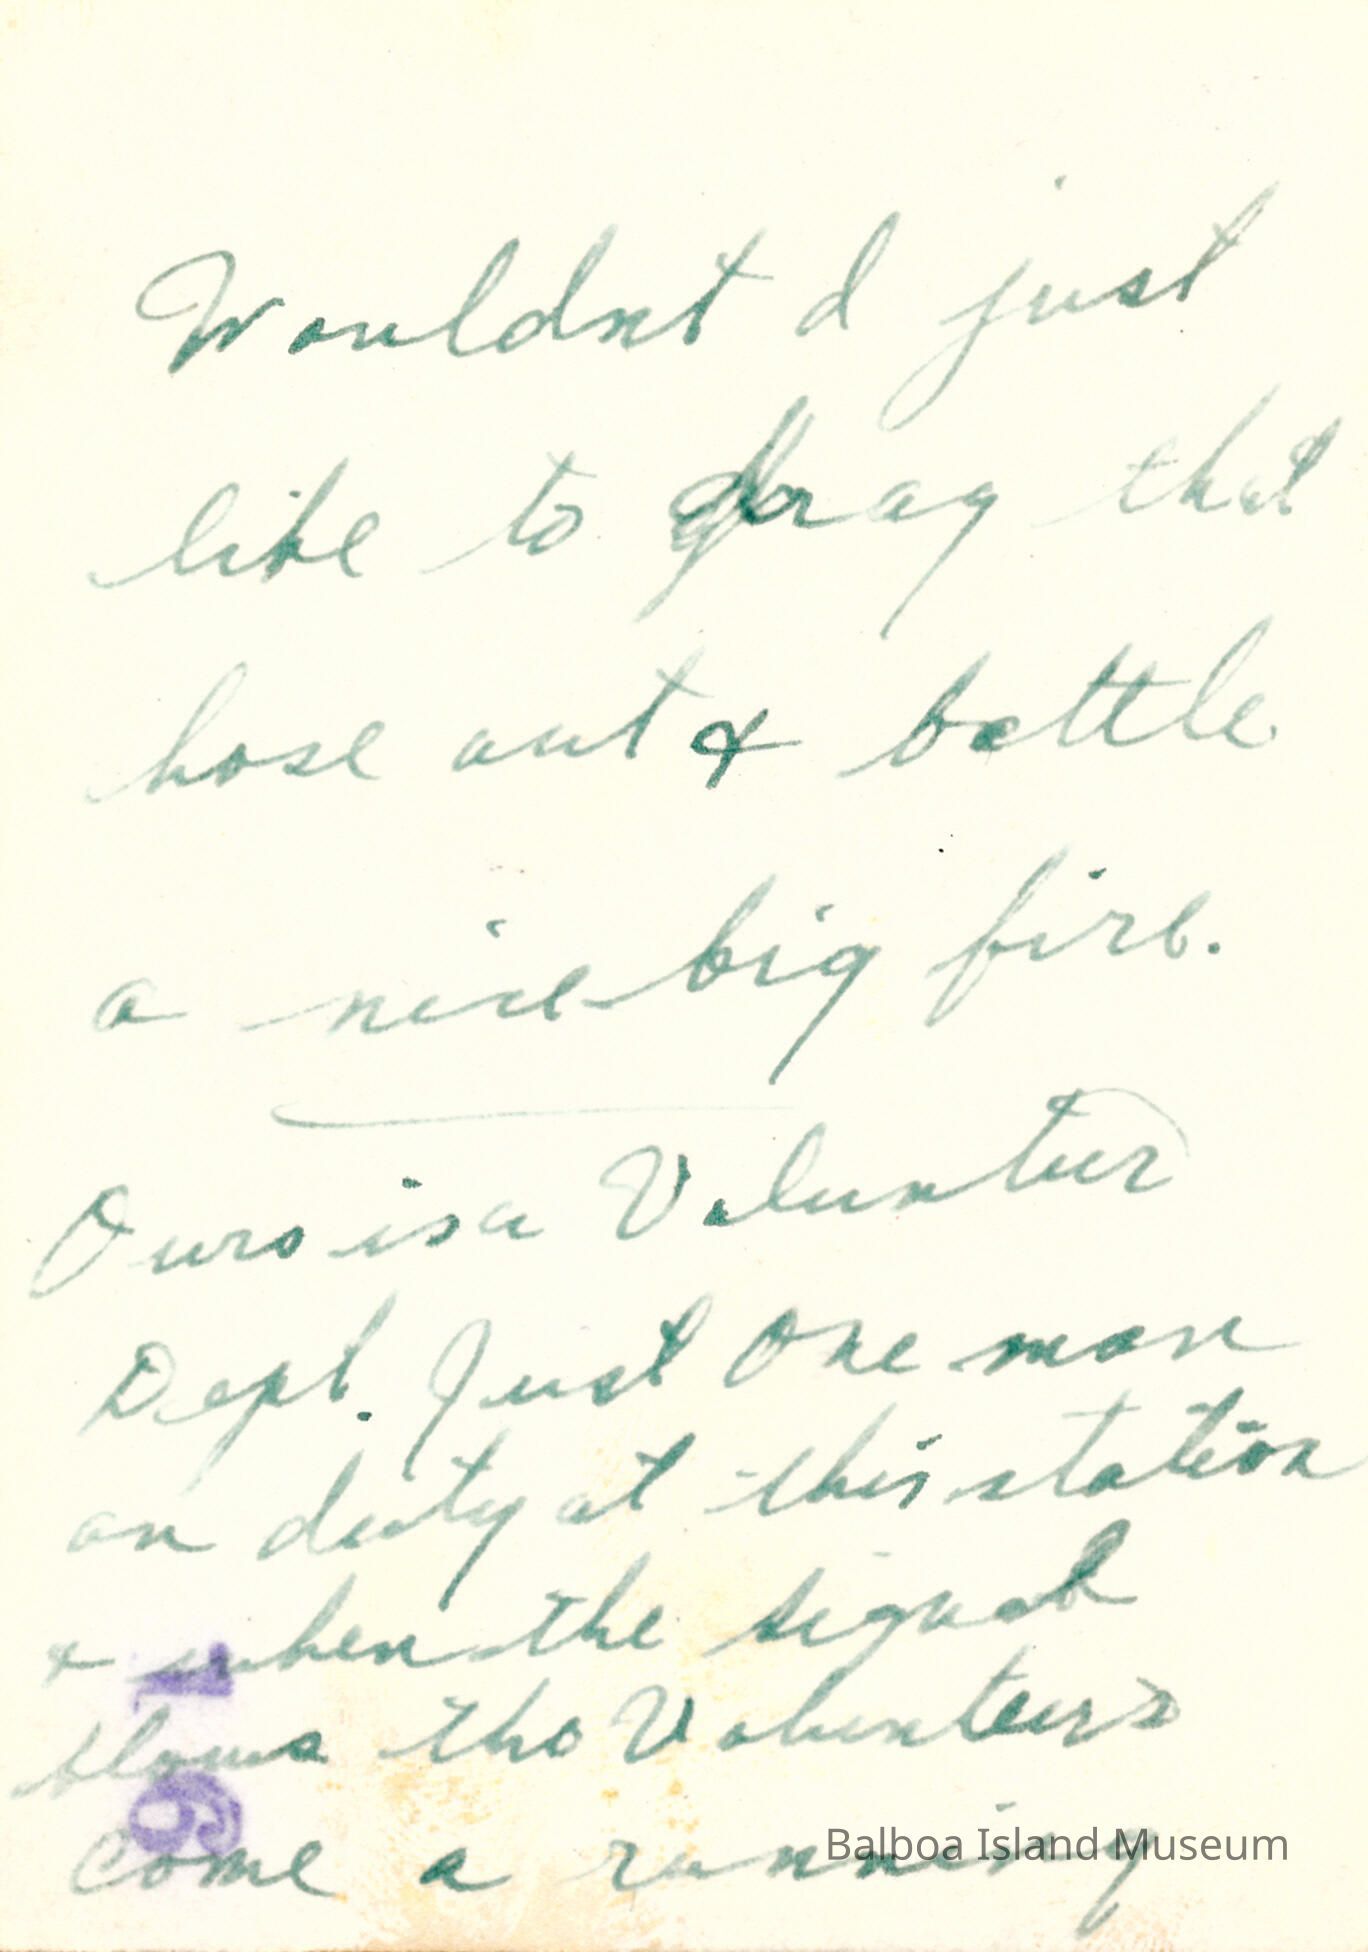 Wouldnt I just
like to drag that
hose out & battle
a nice big fire.
Ours is a Volunteer
Dept. Just one man
on duty at this station
& when the signal
blows the Volunteers
come a running
19
Balboa Island Museum